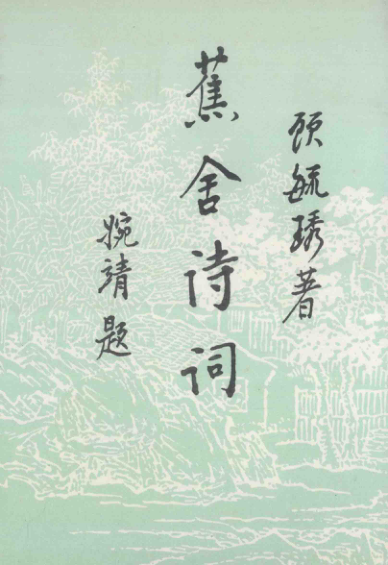 顾毓琇著
蕉舍诗词
婉靖题